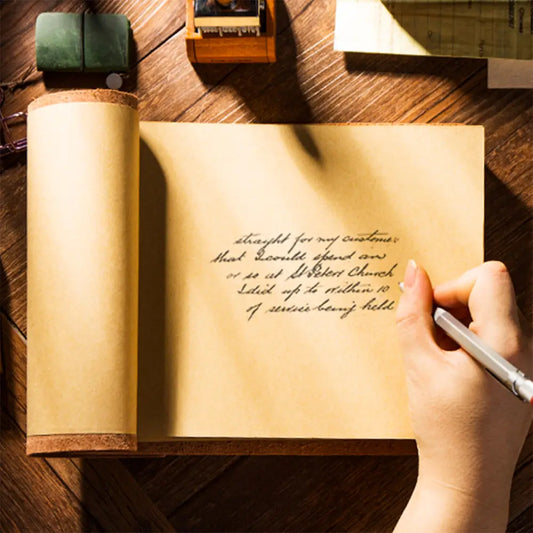 straight for my custome:
that I could spend an
or so at St Peters Church
I did up to within 10
of service being held